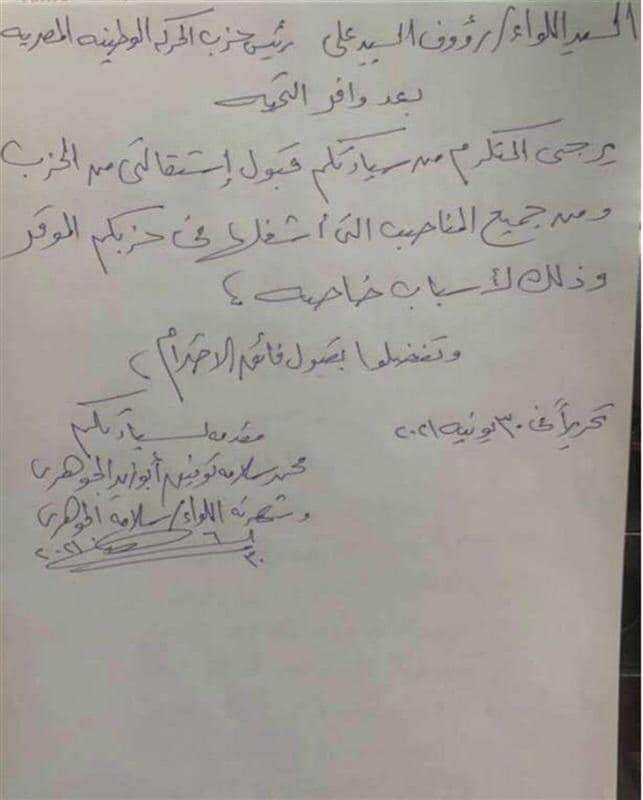 السيد اللواء/ رؤوف السيد على رئيس حزب الحركه الوطنيه المصريه
بعد وافر التحيه
يرجى التكرم من سيادتكم قبول إستقالتى من الحزب
ومن جميع المناصب التى أشغلها فى حزبكم الموقر
وذلك لأسباب خاصه ،
وتفضلوا بقبول فائق الاحترام ،
تحريراً فى ٣٠ يونيه ٢٠٢١
مقدمه لسيادتكم
محمد سلامه توفيق أبوزيد الجوهرى
وشهرته اللواء/ سلامة الجوهرى
٣٠ ٦ ٢٠٢١